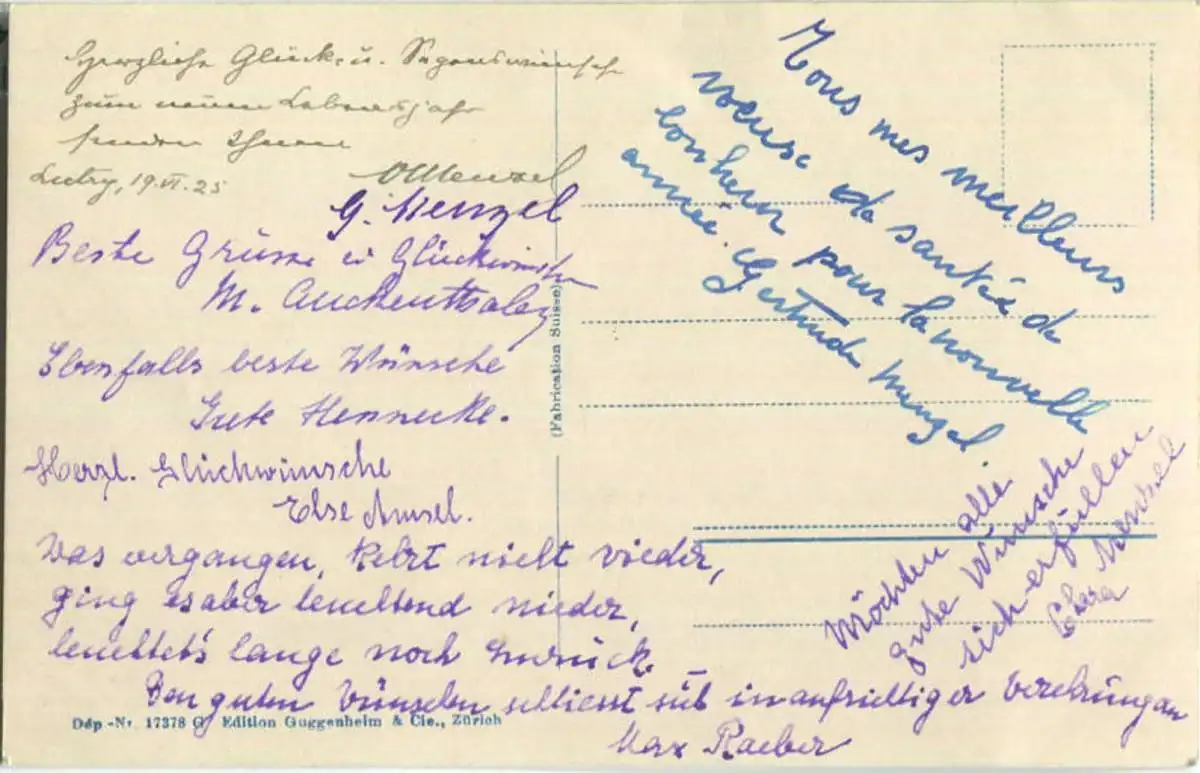 Herzliche Glück- u. Segenswünsche
zum neuen Lebensjahr
senden Ihnen
Lutry, 19.VI.25
O Menzel
G. Menzel
Beste Grüsse u Glückwünsche
M. Auckenthaler
Ebenfalls beste Wünsche
Grete Hennecke.
Herzl. Glückwünsche
Else Amsel.
Was vergangen, kehrt nicht wieder,
ging es aber leuchtend nieder,
leuchtet's lange noch zurück.
Den guten Wünschen schliesst sich in aufrichtiger Verehrung an
Max Raeber
Tous mes meilleurs
voeux de santée de
bonheur pour la nouvelle
année. Gertrude Menzel.
Möchten alle
gute Wünsche
sich erfüllen
Menzel
(Fabrication Suisse)
Dép.-Nr. 17378 G Edition Guggenheim & Cie., Zürich